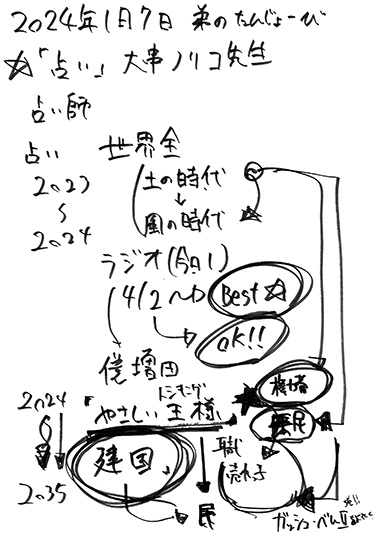 2024年1月7日 弟のたんじょーび
☆「占い」大串ノリコ先生
占い師
占い 世界全
2023 土の時代
〜 ↓
2024 風の時代
ラジオ(今日!)
4/2〜 Best☆
OK!!
僕増田
2024 トンキング 権者
「やさしい王様
庶民
建国」 職
売れ子
2035 民
ガッシュ・ベルⅡ